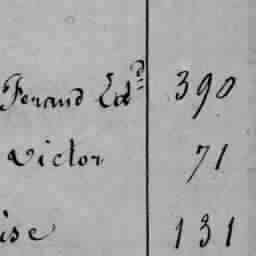 Ferand Ed.d 390
Victor 71
ise 131